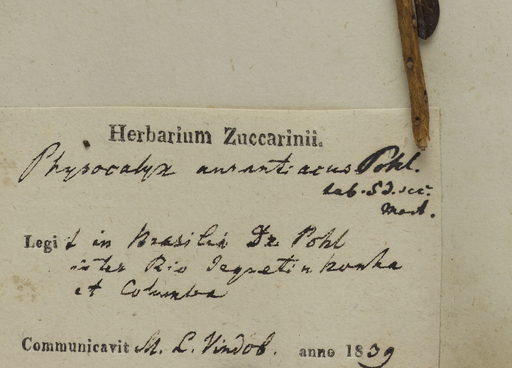 Herbarium Zuccarinii.
Physocalyx aurantiacus Pohl.
tab. 53. sec.
Mart.
Legit in Brasiliâ Dr. Pohl
inter Rio
et Columba
Communicavit M. L. Vindob. anno 1839